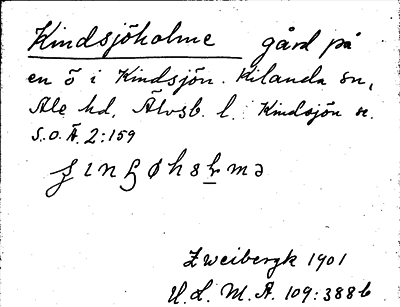 Kindsjöholme gård på
en ö i Kindsjön. Kilanda sn,
Ale hd, Älvsb. l. Kindsjön se.
S.O.Ä. 2:159
Z Weibergk 1901
U.L.M.A. 109:388b